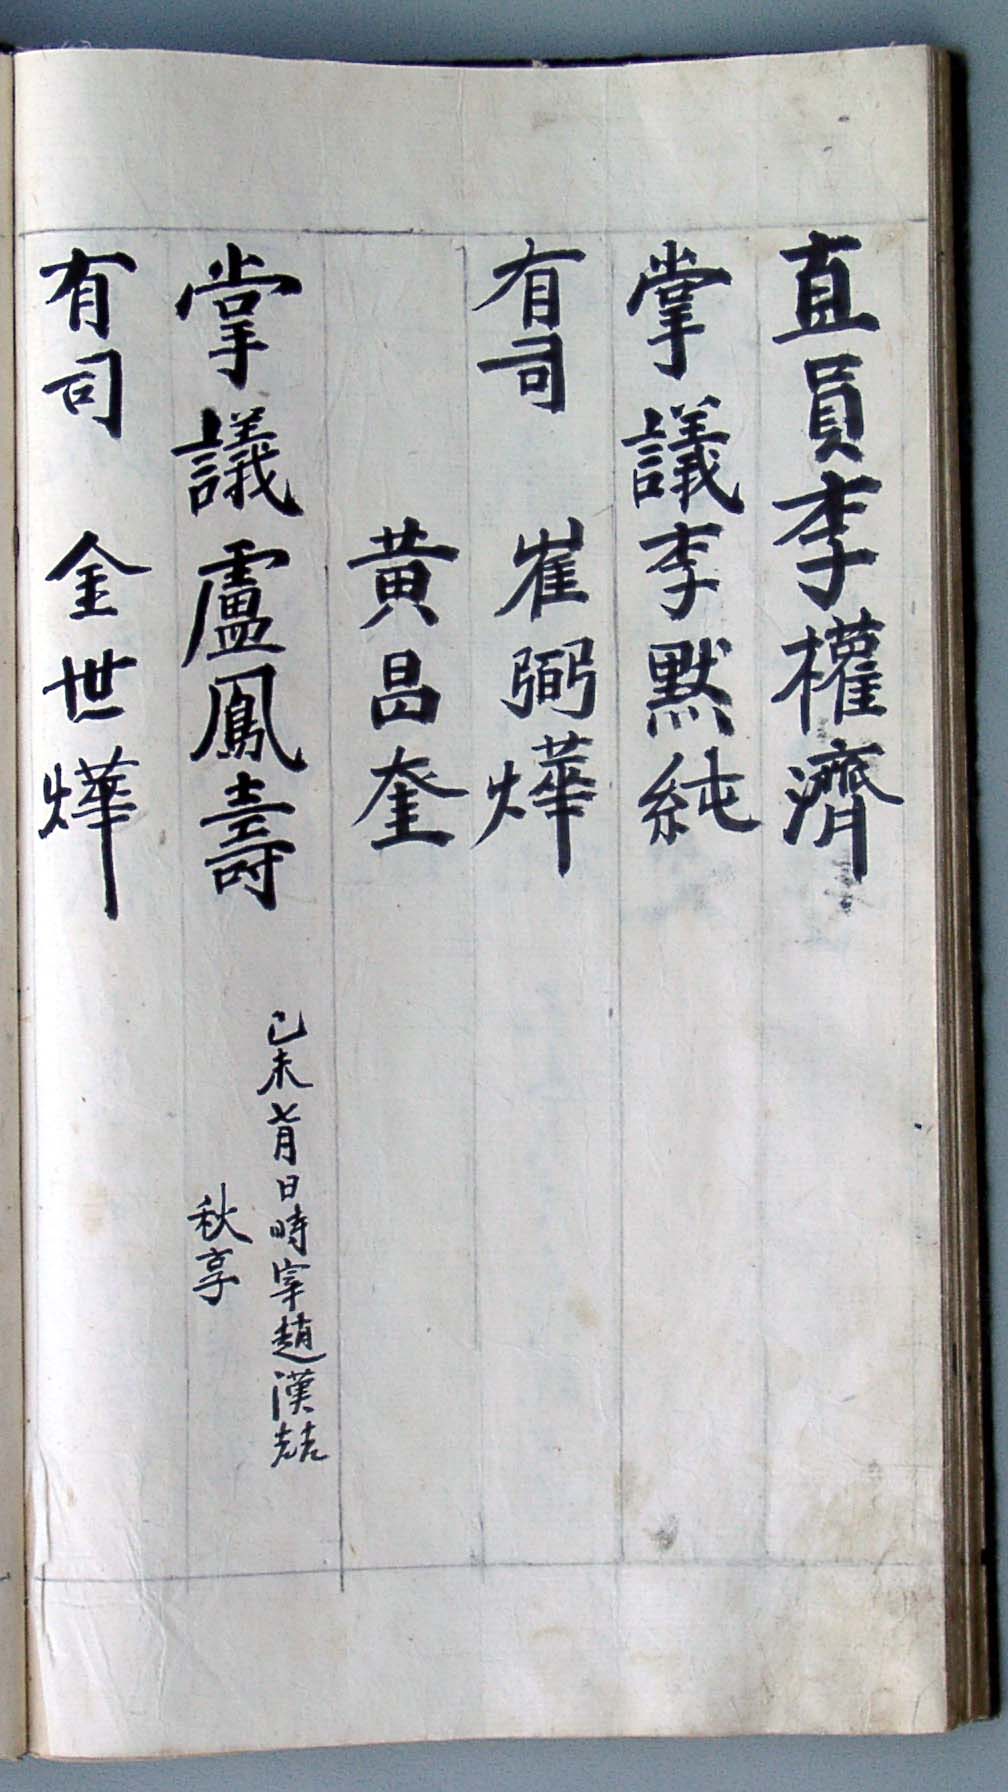 直員李權濟
掌議李默純
有司 崔弼燁
黃昌奎
掌議盧鳳壽
己未七月日時宰趙漢喆
秋享
有司 金世燁